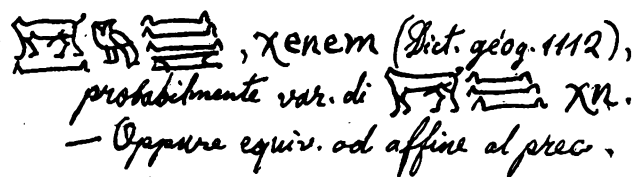 , χenem (Dict. géog. 1112),
probabilmente var. di χn.
— Oppure equiv. od affine al prec.